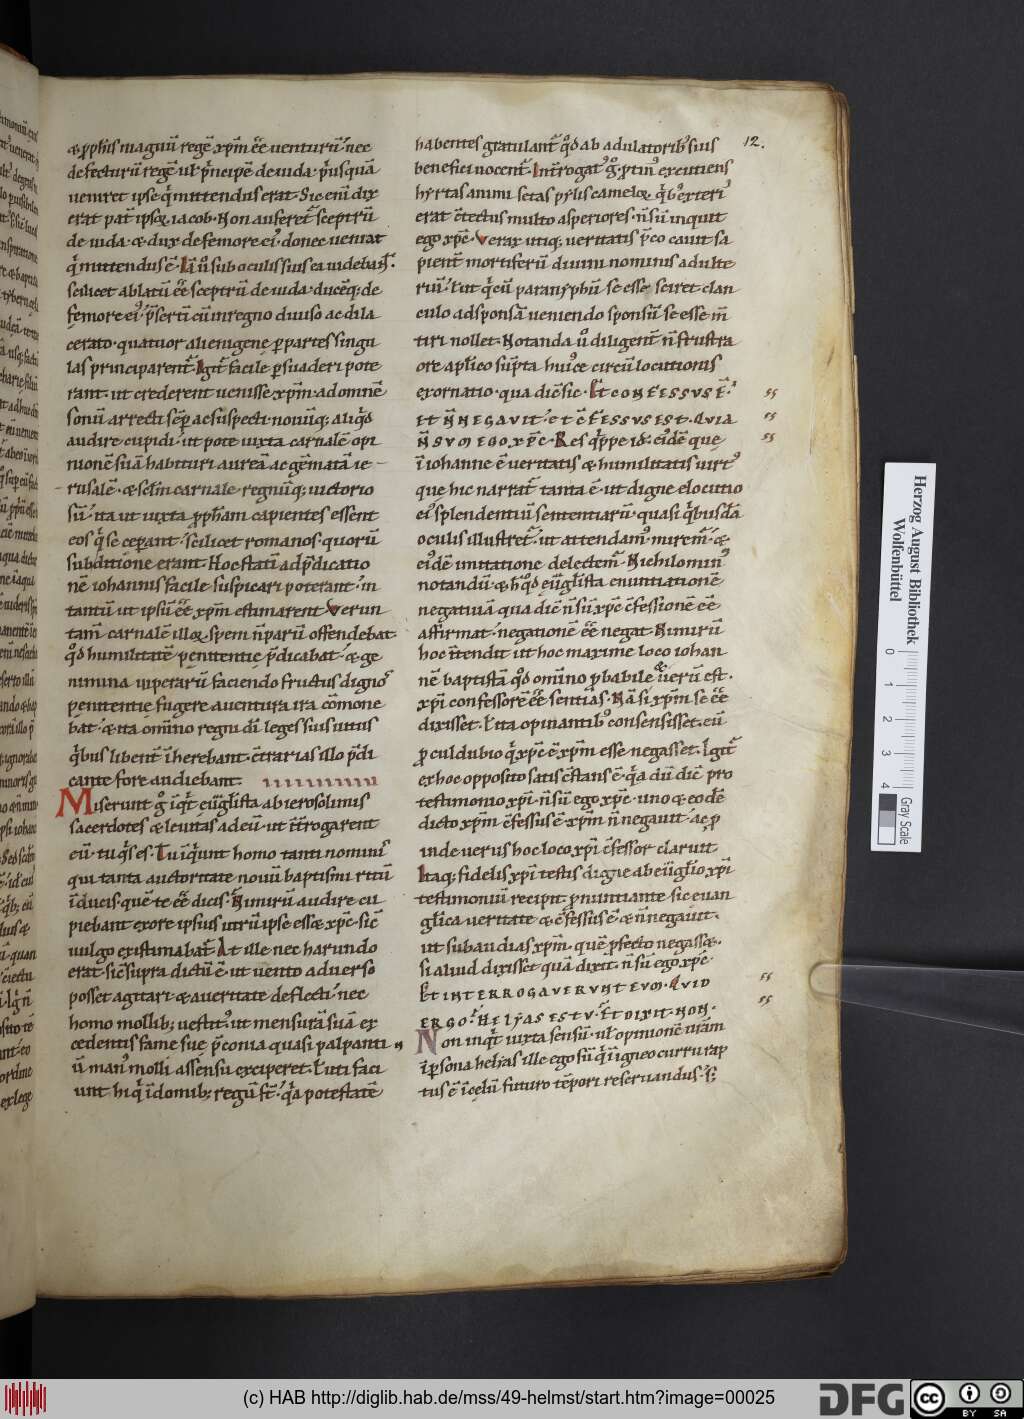 & ꝓph&is magnũ regẽ xp̃m eẽ uenturũ· nec
defecturũ regẽ ul̃ p̃ncipẽ de iuda· p̃usquã
ueniret ipse q̃ mittendus erat· Sic enĩ dix
erat pat̃ ipsoꝝ iacob· Non auferet̃ sceptrũ
de iuda· & dux de femore ei᾽· donec ueniat
q̃ mittendus ẽ· Iã u̾o sub oculis suis ea uidebant̃·
scilicet ablatũ eẽ sceptrũ de iuda· ducẽq; de
femore ei᾽· p̃sertĩ cũ in regno diuiso ac dila
cerato· quatuor alienigenę ꝑ partes singu
las principarent̃· Igit̃ facile ꝑsuaderi pote
rant· ut crederent uenisse xp̃m· ad omnẽ
sonũ arrecti semꝑ ac suspecti· nouũq; aliq̃d
audire cupidi· ut pote iuxta carnalẽ opi
nionẽ suã habituri aureã ac gẽmatã ie
rusalẽ· & sc̃lm carnale· regnũq; uictorio
sũ· ita ut iuxta ꝓph&iam capientes essent
eos q̃ se ceperant· scilicet romanos· quorũ
sub ditione erant· Hoc statĩ ad p̃dicatio
nẽ iohannis facile suspicari poterant· in
tantũ ut ipsũ eẽ xp̃m estimarent· Verun
tam̃ carnalẽ illoꝝ spem ñ parũ offendebat
q̾d humilitatẽ penitentię p̃dicabat· & ge
nimina uiperarũ faciendo fructus dignos
penitentię fugere a uentura ira cõmone
bat· & ita omĩno regni dĩ leges suis uitiis
q̃bus libent̃ ĩherebant· c̃trarias illo p̃di
cante fore audiebant·
Miserunt g̊ iñqt eũgl̃ista ab ierosolimis
sacerdotes & leuitas ad eũ· ut ĩt̃rogarent
eũ· tu q̃s es· Tu iñq̃unt homo tanti nominis
qui tanta auctoritate nouũ baptismi ritũ
ĩducis· quẽ te eẽ dicis· Nimirũ audire cu
piebant ex ore ipsius utrũ ipse ess& xp̃c· sic̃
uulgo existimabat̃· At ille nec harundo
erat· sic̃ supra dictũ ẽ· ut uento aduerso
posset agitari· & a ueritate deflecti· nec
homo mollib; uestit᾽· ut mensurã suã ex
cedentis famę suę p̃conia quasi palpanti
ũ man᾽ molli assensu exciperet· Vt ĩti faci
unt hi q̃ ĩ domib; regũ st̃· q̃a potestatẽ
habentes gratulant̃ q̾d ab adulatorib᾽ suis
12.
benefici nocent̃· Int̃rogat᾽ g̊· ꝓtin᾽ excutiens
hyrtas animi setas pẏlis cameloꝝ q̃b᾽ exteri᾽
erat c̃tectus multo asperiores· ñ sũ inquit
ego xp̃c· Verax utiq; ueritatis p̃co cauit sa
pient̃ mortiferũ diuini nominis adulte
riũ· Vt ut q̃ cũ paranẏphũ se esse sciret clan
culo ad sponsã ueniendo sponsũ se esse m̃
tiri nollet· Notanda u̾o diligent̃ ñ frustra
ore apl̃ico sũpta hui᾽ce circũlocutionis
exornatio· qua diẽ sic· ET CONFESSVS Ẽ·
ET Ñ NEGAVIT· ET C̃FESSVS EST· QVIA
Ñ SVM EGO XP̃C· Res q̃ppe id: ei᾽dẽ que
ĩ iohanne ẽ ueritatis & humilitatis uirt᾽
que hic narrat̃ tanta ẽ· ut digne elocutio
ei᾽ splendentiũ sententiarũ· quasi q̃busdã
oculis illustret̃· ut attendam᾽ mirem̃· &
ei᾽dẽ imitatione delectem̃· Nichilomin᾽
notandũ· & h̃ q̾d eũgl̃ista enuntiationẽ
negatiuã qua diẽ ñ sũ xp̃c c̃fessionẽ eẽ
affirmat· negationẽ eẽ negat· Nimirũ
hoc ĩtendit ut hoc maxime loco iohan
nẽ baptistã q̾d omĩno ꝓbabile & uerũ est·
xp̃i confessorẽ eẽ sentias· Nã si xp̃m se eẽ
dixisset· Vt ita opinantib᾽ consensisset· eũ
ꝓculdubio q̃ xp̃c ẽ xp̃m esse negasset· Igit̃
ex hoc opposito satis c̃stans ẽ· q̃a dũ diẽ pro
testimonio xp̃i· ñ sũ ego xp̃c· uno & eodẽ
dicto xp̃m c̃fessus ẽ xp̃m ñ negauit· ac ꝓ
inde uerus hoc loco xp̃i c̃fessor claruit
Itaq; fidelis xp̃i testis digne ab eũgl̃io xp̃i
testimoniũ recipit· ꝓnuntiante sic euan
gl̃ica ueritate· & c̃fessus ẽ· & ñ negauit·
ut subaudias xp̃m· quẽ ꝓfecto negass&·
si aliud dixisset quã dixit· ñ sũ ego xp̃c·
ET INTERROGAVERVNT EVM· QVID
ERGO· HELẎAS ES TV· ET DIXIT· NON·
Non inqt̃ iuxta sensũ· ul̃ opinionẽ urãm
ĩ ꝑsona helẏas ille ego sũ q̃ ĩ igneo curru rap
tus ẽ ĩ cęlũ futuro tẽpori reseruandus· s;
Herzog August Bibliothek
Wolfenbüttel
0 1 2 3 4
Gray Scale
(c) HAB http://diglib.hab.de/mss/49-helmst/start.htm?image=00025
DFG
cc BY SA